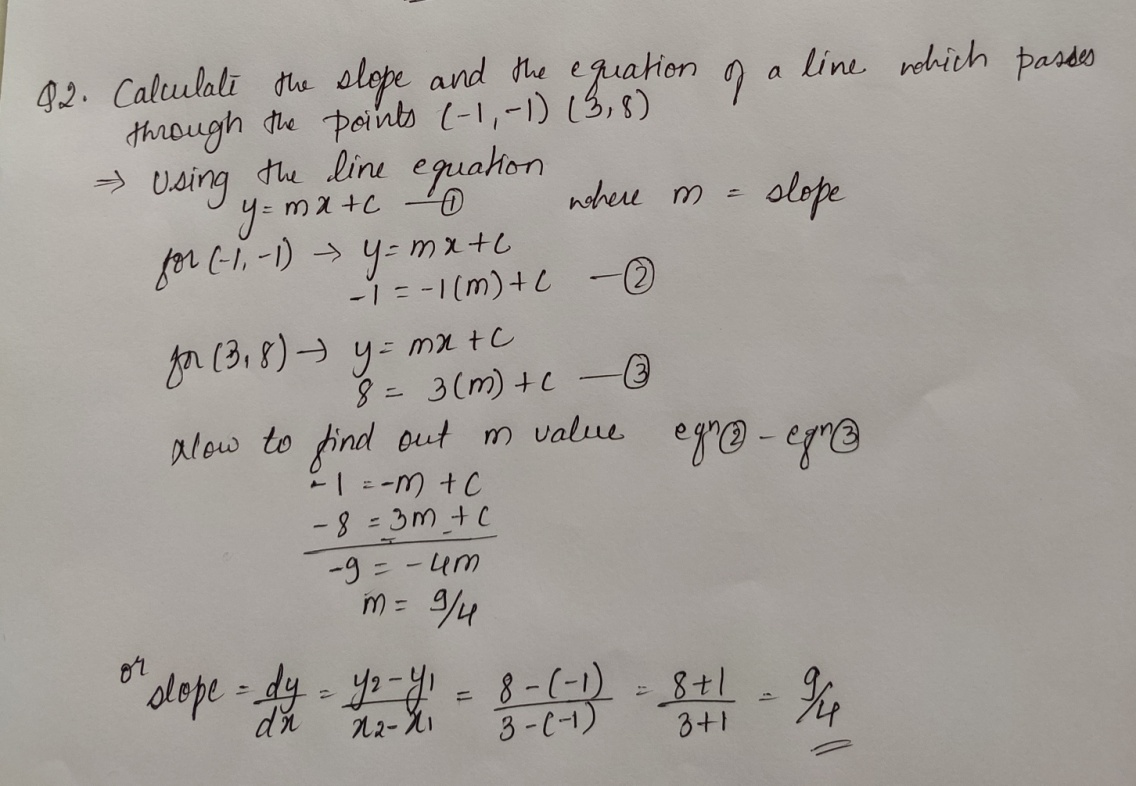 Q2. Calculate the slope and the equation of a line which passes
through the points (-1,-1) (3,8)
⇒ Using the line equation
y = mx + c —① where m = slope
for (-1,-1) → y = mx + c
-1 = -1(m) + c —②
for (3,8) → y = mx + c
8 = 3(m) + c —③
Now to find out m value eqn② - eqn③
-1 = -m + c
- 8 = 3m + c
- -
-9 = -4m
m = 9/4
or slope = dy/dx = y2-y1/x2-x1 = 8-(-1)/3-(-1) = 8+1/3+1 = 9/4